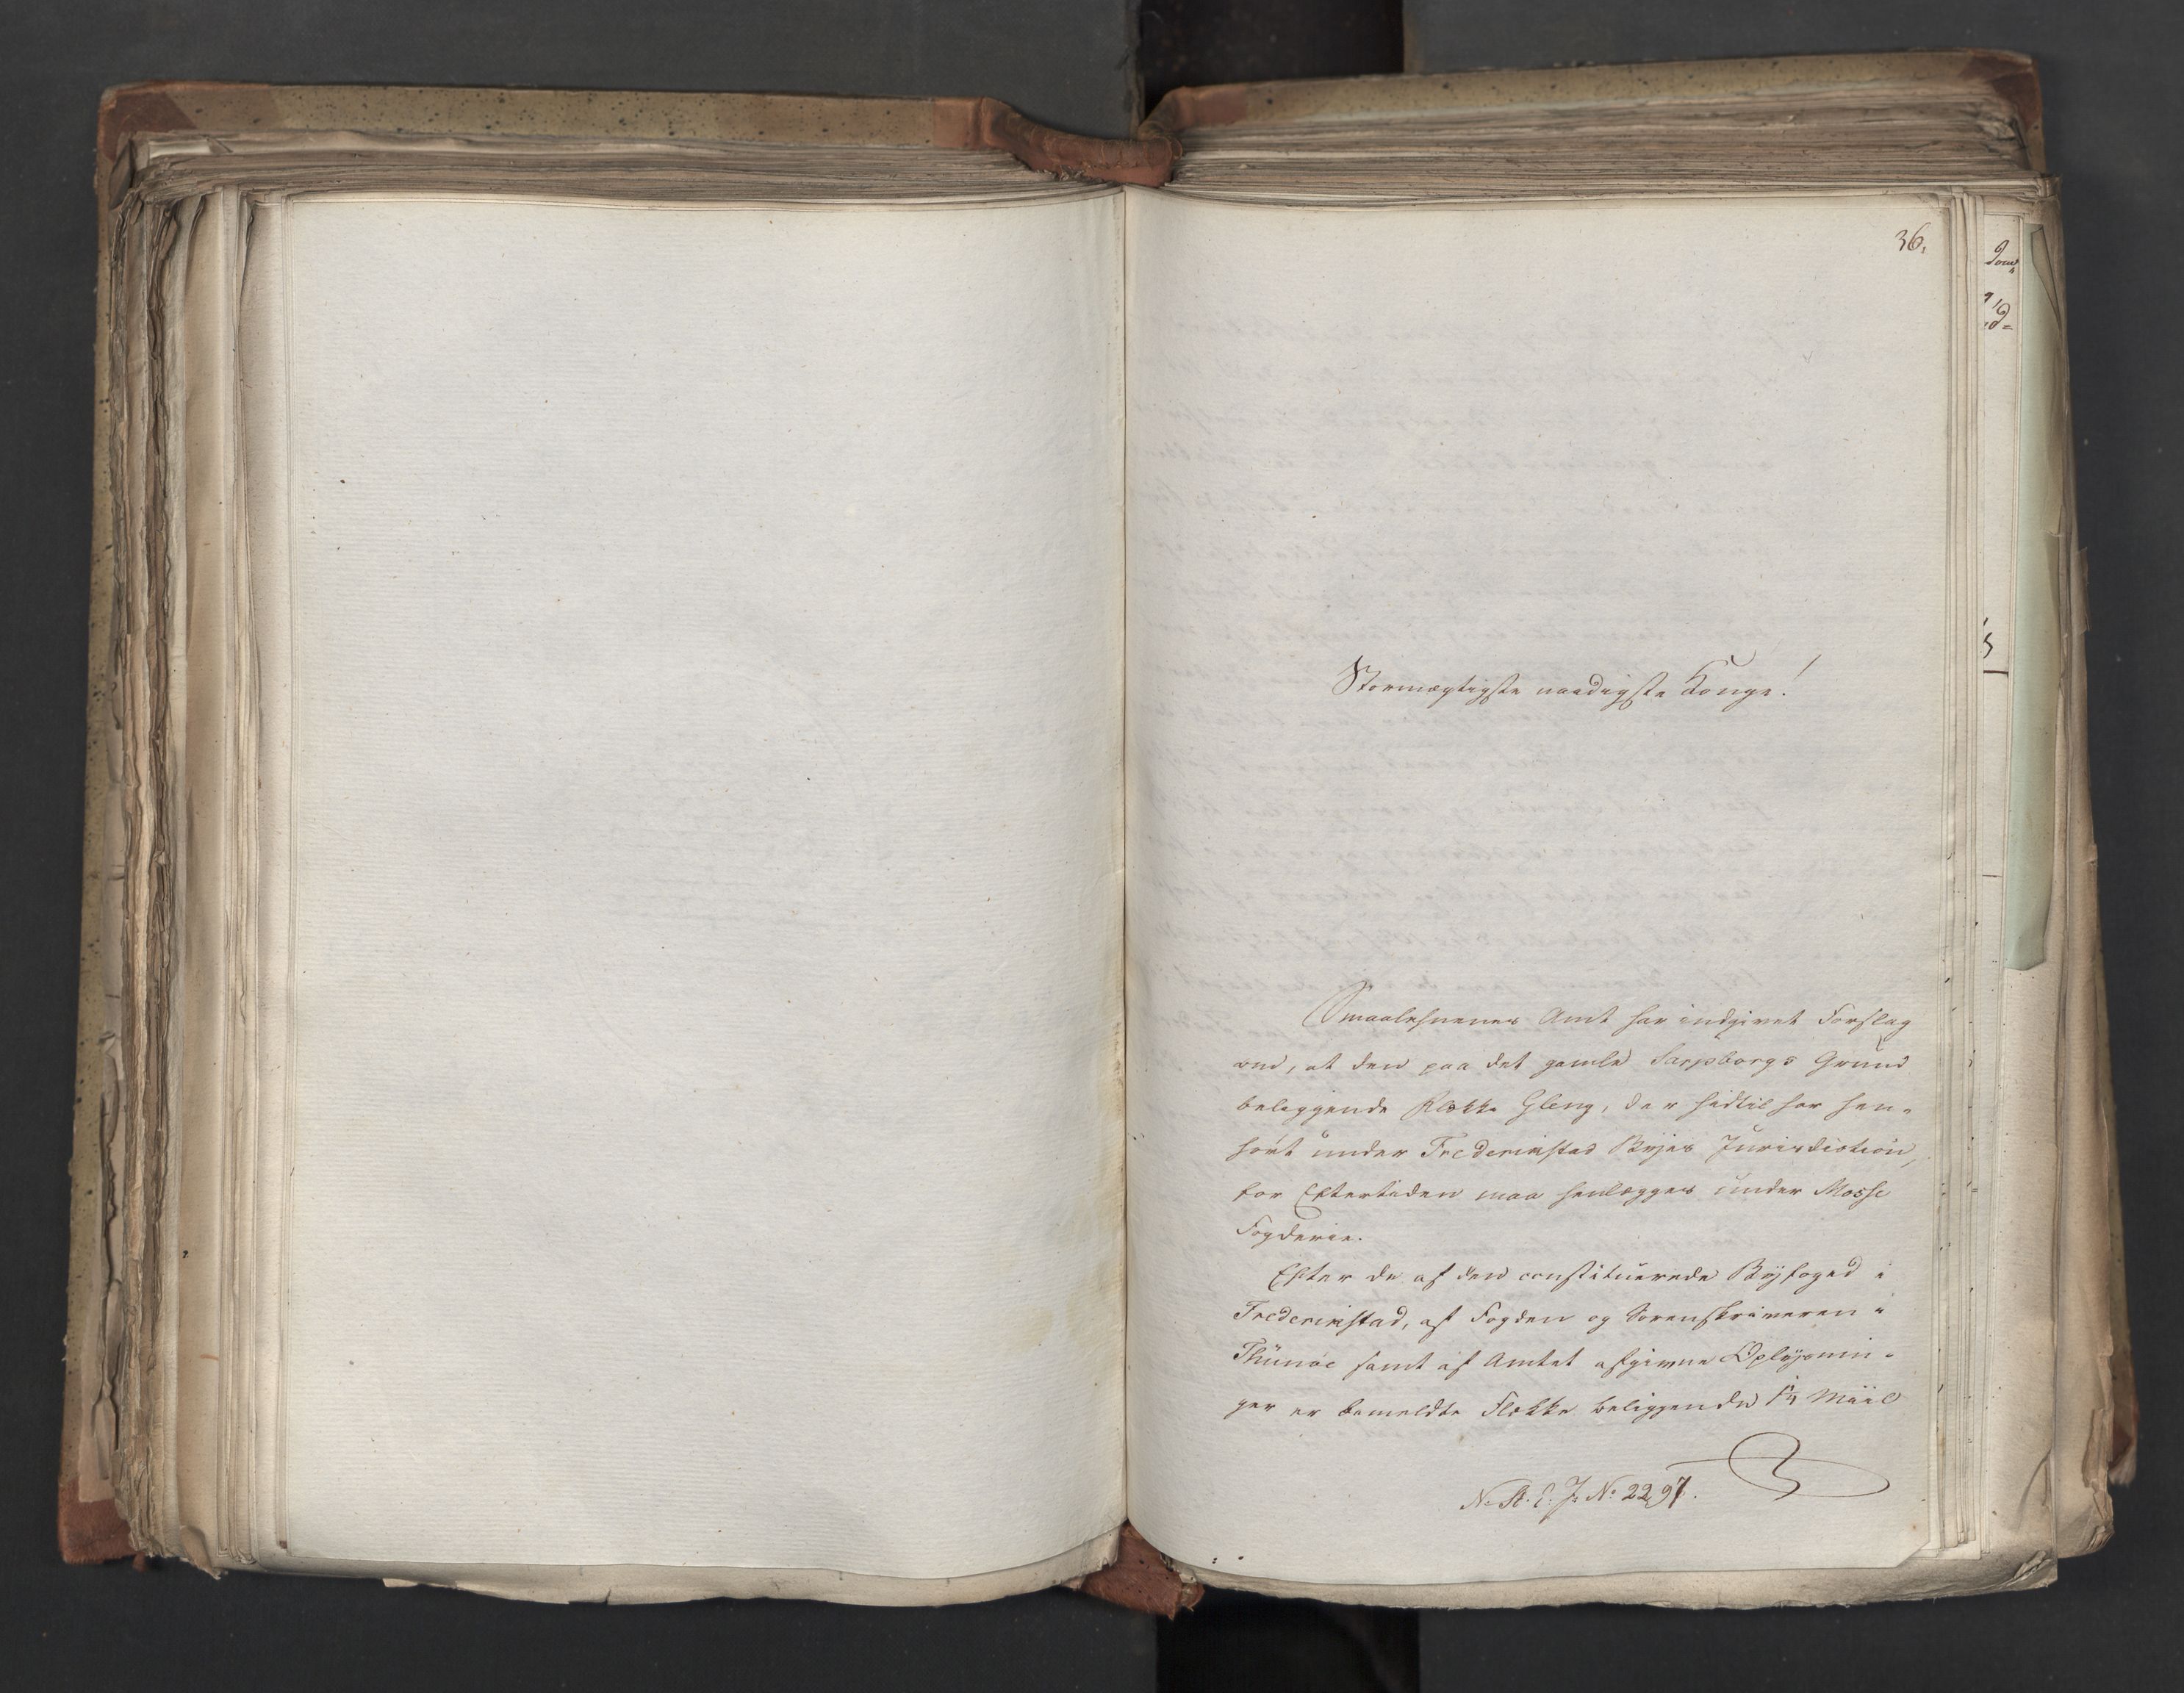 36.
Stormægtigste naadigste Konge!
Smaalehnenes Amt har indgivet Forslag
om, at den paa det gamle Sarpsborgs Grund
beliggende Flekke Gleng, der hidtil har hen-
hørt under Frederikstad Byes Jurisdiction,
for Eftertiden maa henlægges under Mosse
Fogderie.
Efter de af den constituerede Byfoged i
Frederikstad, af Fogden og Sorenskriveren i
Thunøe samt af Amtet afgivne Oplysnin-
ger er bemeldte Flekke beliggende Miil
N. St. E. J. No 2297.